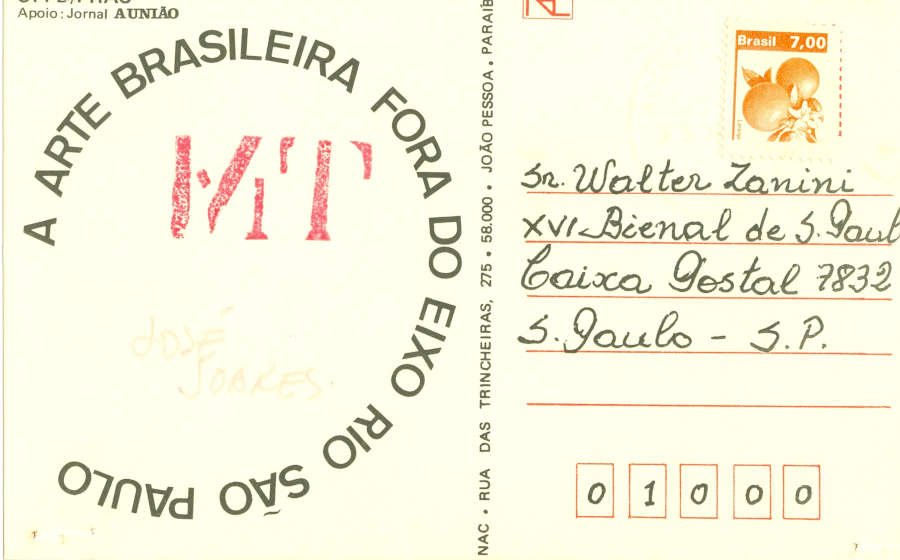 Apoio: Jornal A UNIÃO
A ARTE BRASILEIRA FORA DO EIXO RIO SÃO PAULO
MT
JOSÉ
SOARES
NAC • RUA DAS TRINCHEIRAS, 275 • 58.000 • JOÃO PESSOA, PARAIB
Brasil 7,00
Sr. Walter Zanini
XVI-Bienal de S. Paul
Caixa Postal 7832
S. Paulo - S.P.
0 1 0 0 0